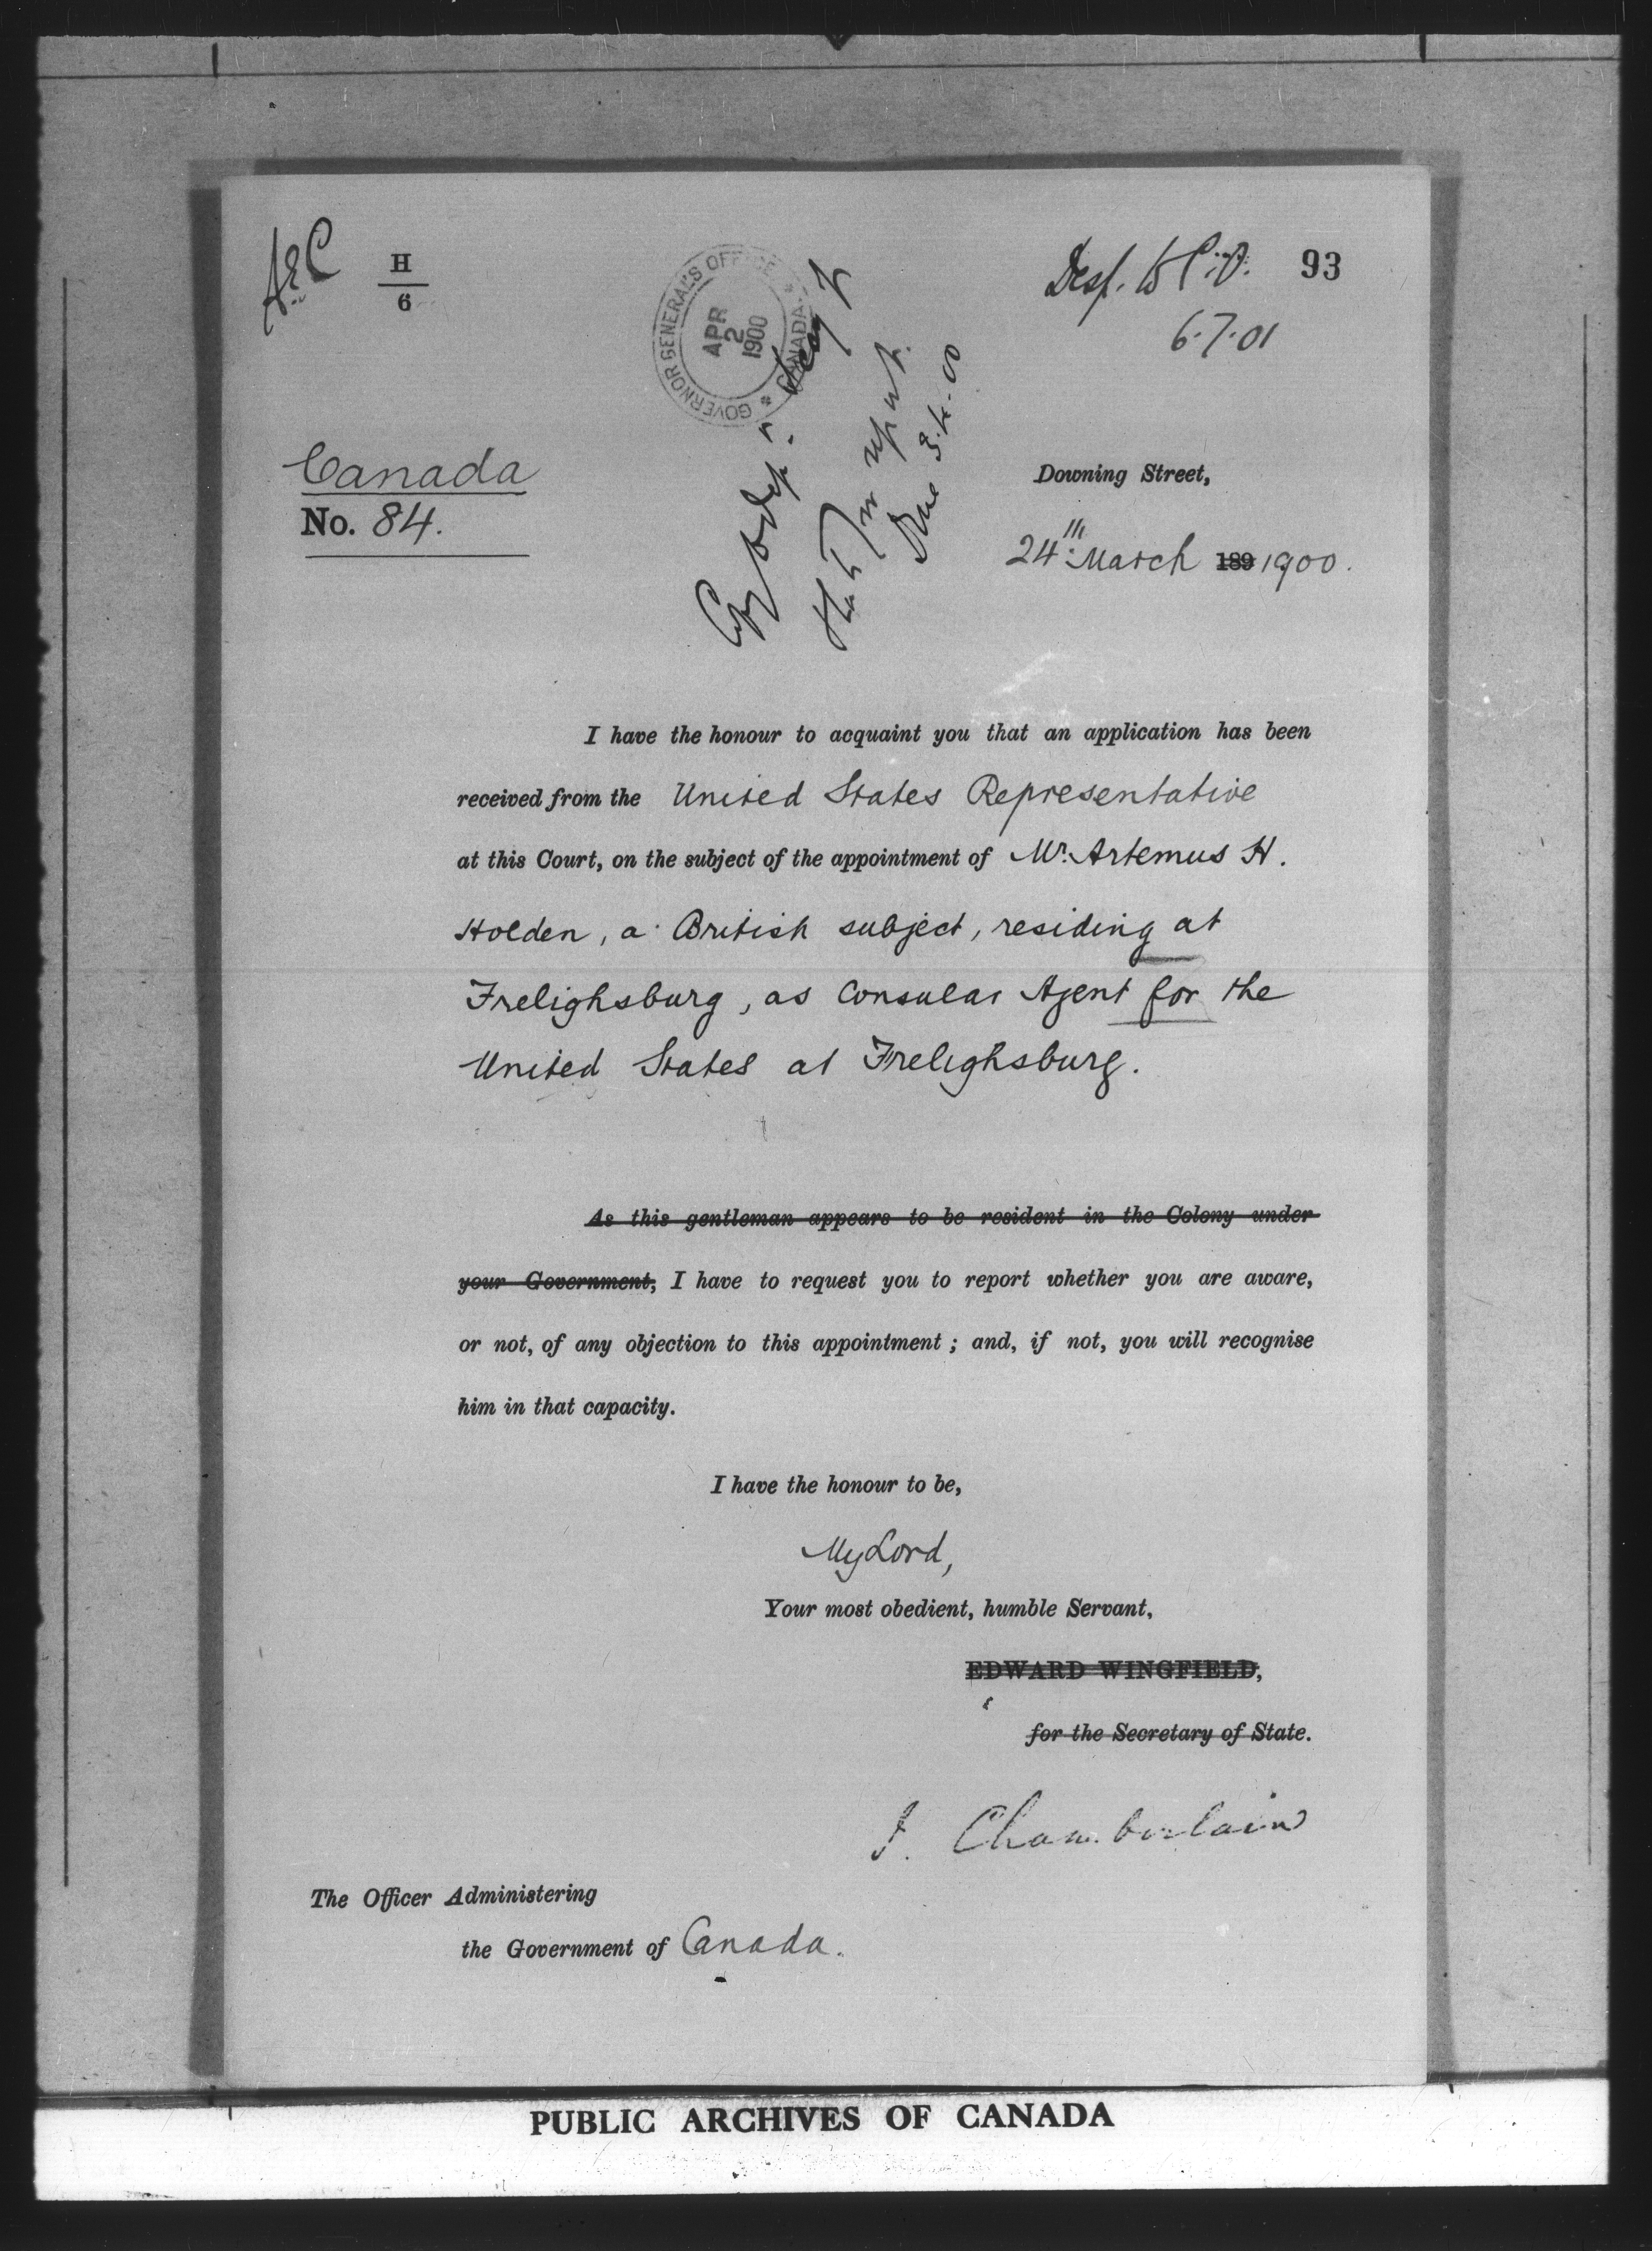 H
6
GOVERNOR GENERAL'S OFFICE
CANADA
APR
2
1900
Desp. to C.O.
6.7.01
93
Canada
No. 84.
Downing Street,
24th March 189 1900.
I have the honour to acquaint you that an application has been
received from the United States Representative
at this Court, on the subject of the appointment of Mr. Artemus H.
Holden, a British subject, residing at
Frelighsburg, as Consular Agent for the
United States at Frelighsburg.
As this gentleman appears to be resident in the Colony under
your Government, I have to request you to report whether you are aware,
or not, of any objection to this appointment; and, if not, you will recognise
him in that capacity.
I have the honour to be,
My Lord,
Your most obedient, humble Servant,
EDWARD WINGFIELD,
for the Secretary of State.
J. Chamberlain
The Officer Administering
the Government of Canada.
PUBLIC ARCHIVES OF CANADA